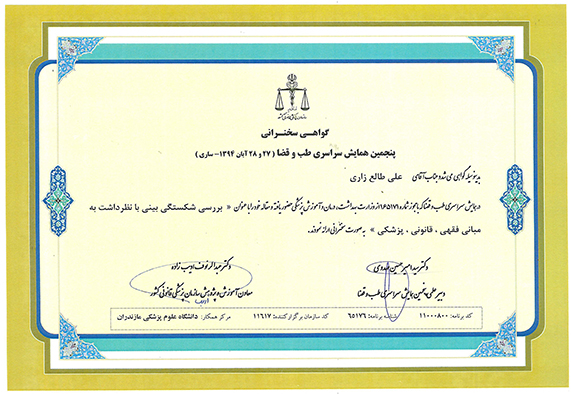 گواهی سخنرانی
پنجمین همایش سراسری طب و قضا ( ۲۷ و ۲۸ آبان ۱۳۹۴- ساری )
بدینوسیله گواهی می شود جناب آقای علی طالع زاری
در همایش سراسری طب و قضا که با مجوز شماره ۱۶۵۱۷۱ از وزارت بهداشت، درمان و آموزش پزشکی حضور یافته و مقاله خود را با عنوان « بررسی شکستگی بینی با نظرداشت به
مبانی فقهی ، قانونی ، پزشکی » به صورت سخنرانی ارائه نمودند.
دکتر سید امیرحسین مهدوی
دبیر علمی پنجمین همایش سراسری طب و قضا
دکتر عبدالرئوف ادیب زاده
معاون آموزش و پژوهش سازمان پزشکی قانونی کشور
کد برنامه: ۱۱۰۰۰۸۰۰ شناسه برنامه: ۶۵۱۷۶ کد سازمان برگزارکننده: ۱۱۶۱۷ مرکز همکار: دانشگاه علوم پزشکی مازندران